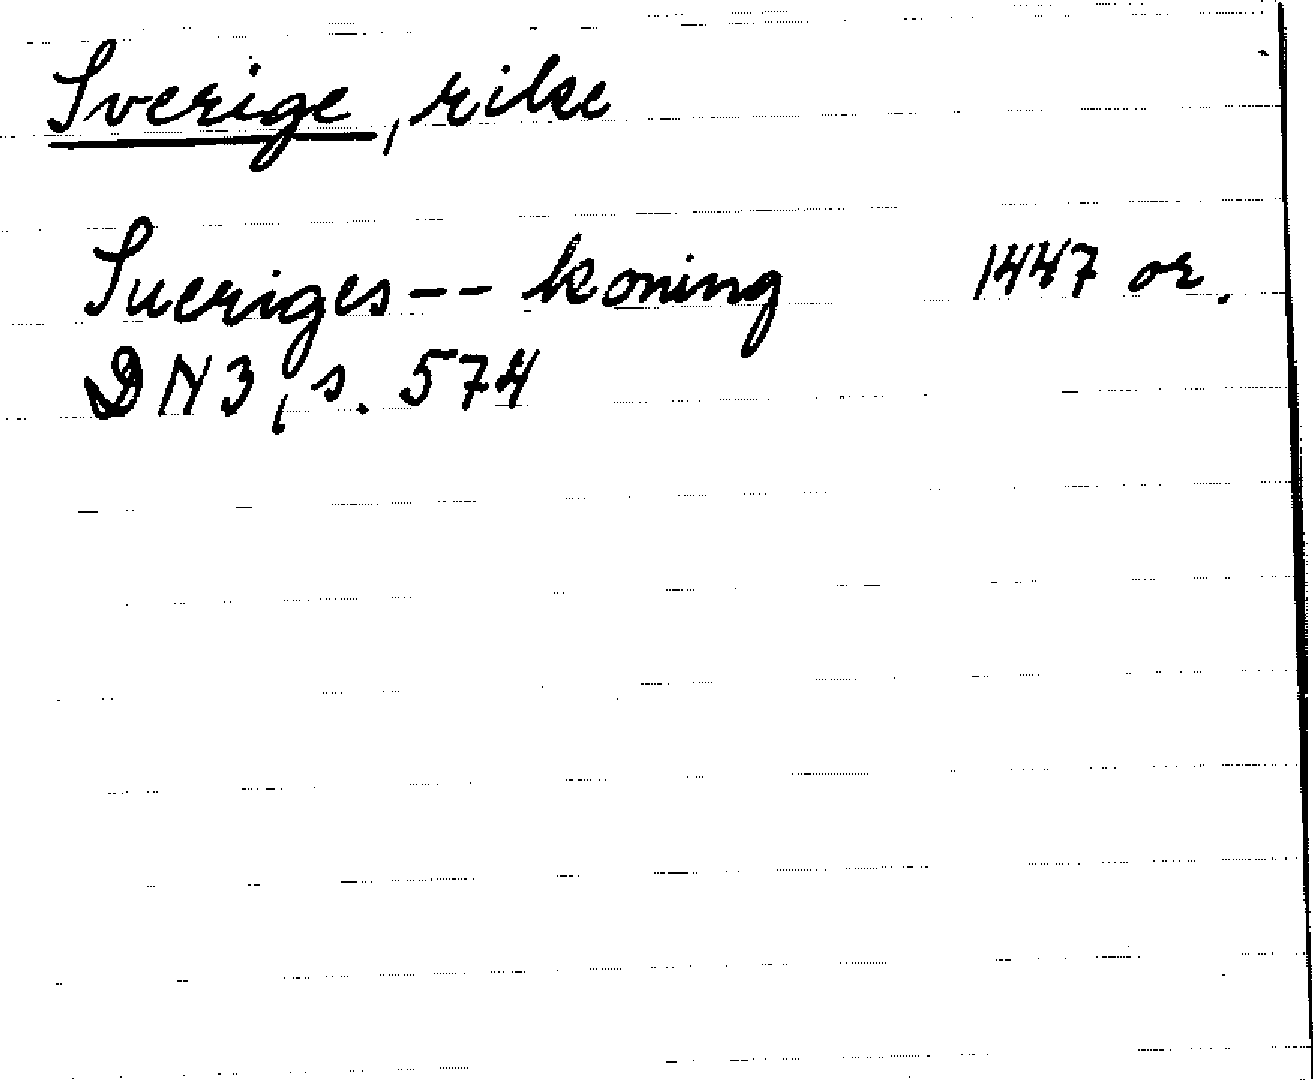 Sverige, rike
Sueriges -- koning 1447 or.
DN 3, s. 574